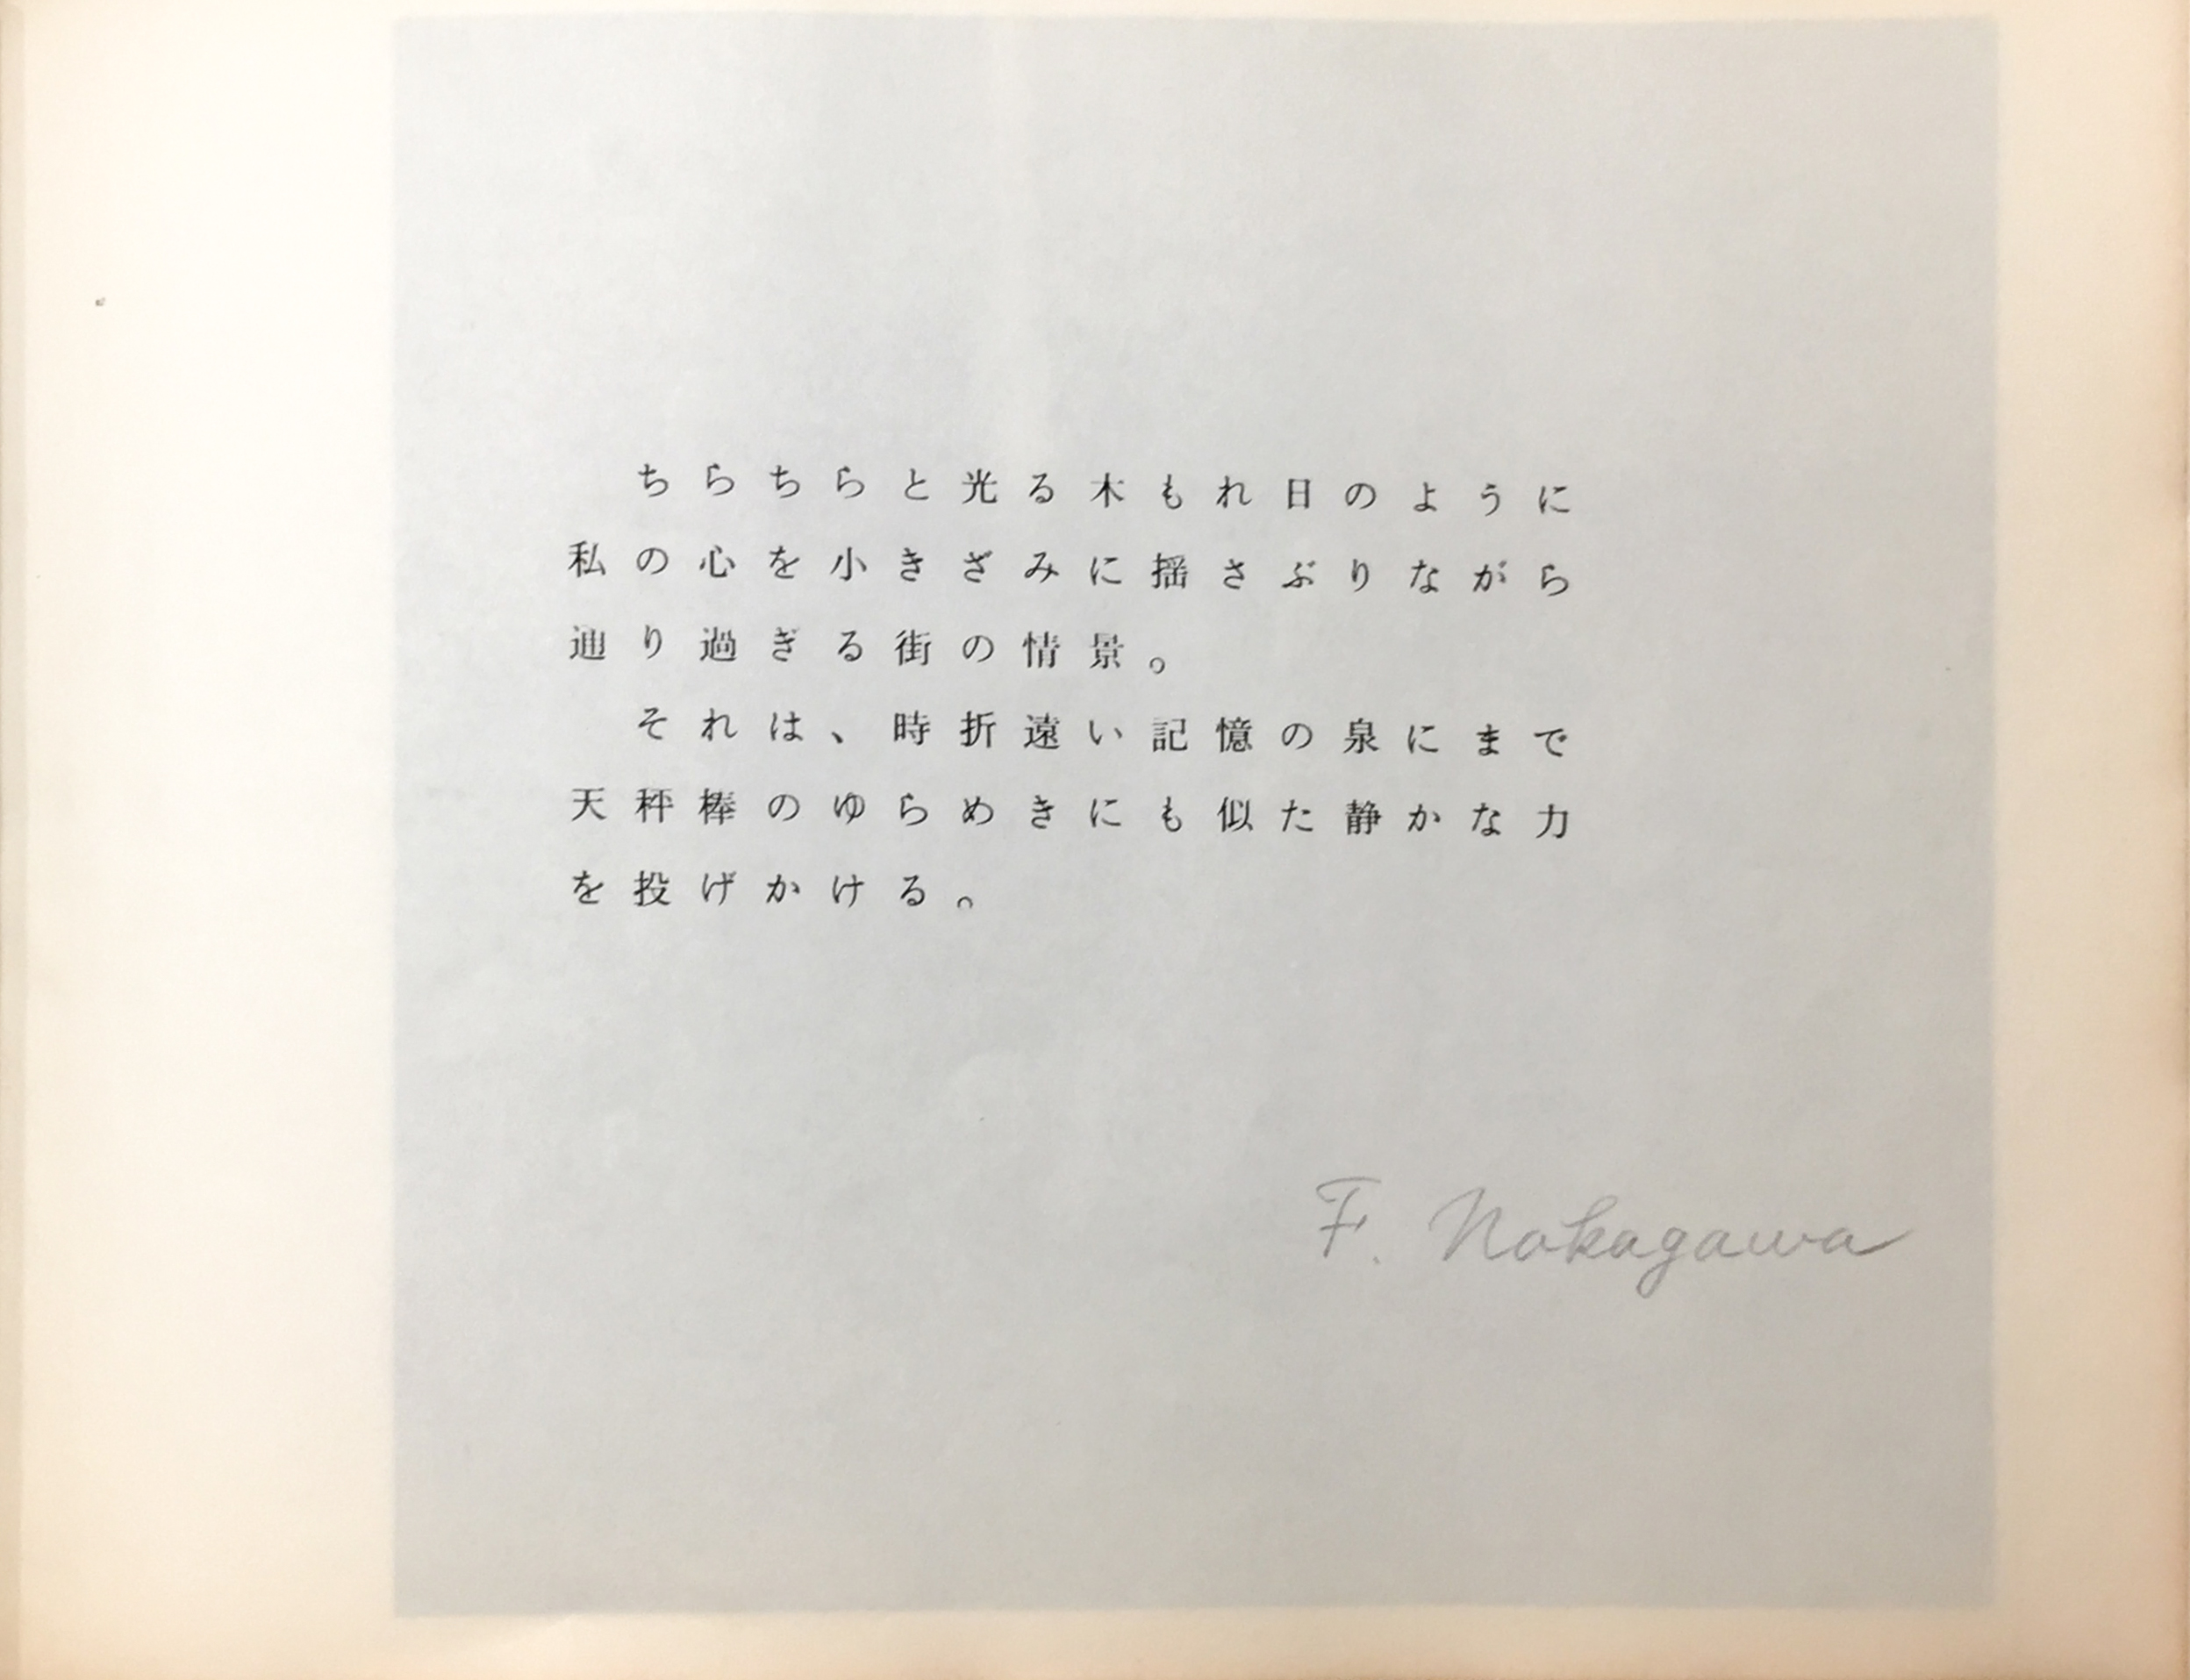 ちらちらと光る木もれ日のように
私の心を小きざみに揺さぶりながら
通り過ぎる街の情景。
それは、時折遠い記憶の泉にまで
天秤棒のゆらめきにも似た静かな力
を投げかける。
F. Nakagawa